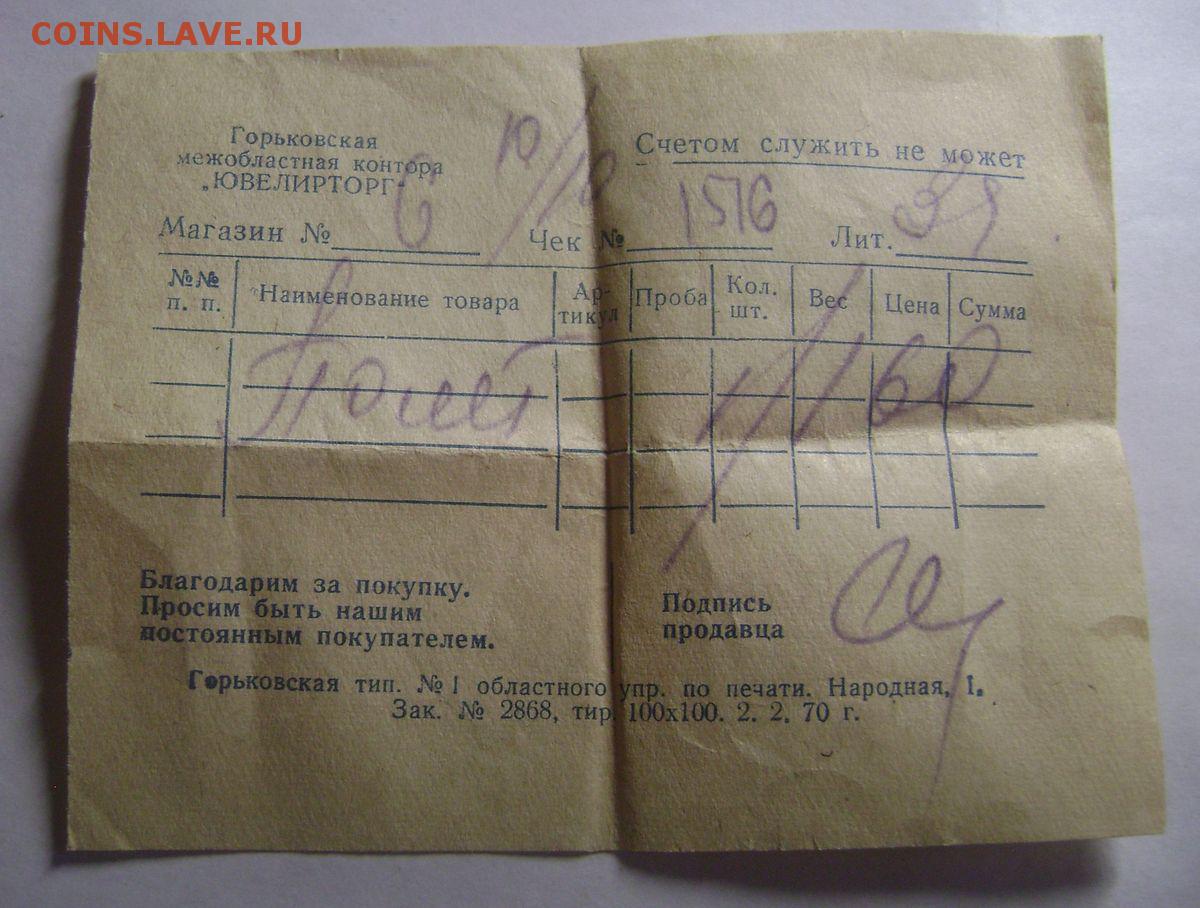 COINS.LAVE.RU
Горьковская
межобластная контора
„ЮВЕЛИРТОРГ"
10/10
Счетом служить не может
Магазин № 6 Чек № 1576 Лит.
№№ п. п. Наименование товара Ар-тикул Проба Кол. шт. Вес Цена Сумма
Полет 1 160
Благодарим за покупку.
Просим быть нашим
постоянным покупателем.
Подпись
продавца
Горьковская тип. №1 областного упр. по печати. Народная, 1.
Зак. № 2868, тир. 100х100. 2. 2. 70 г.